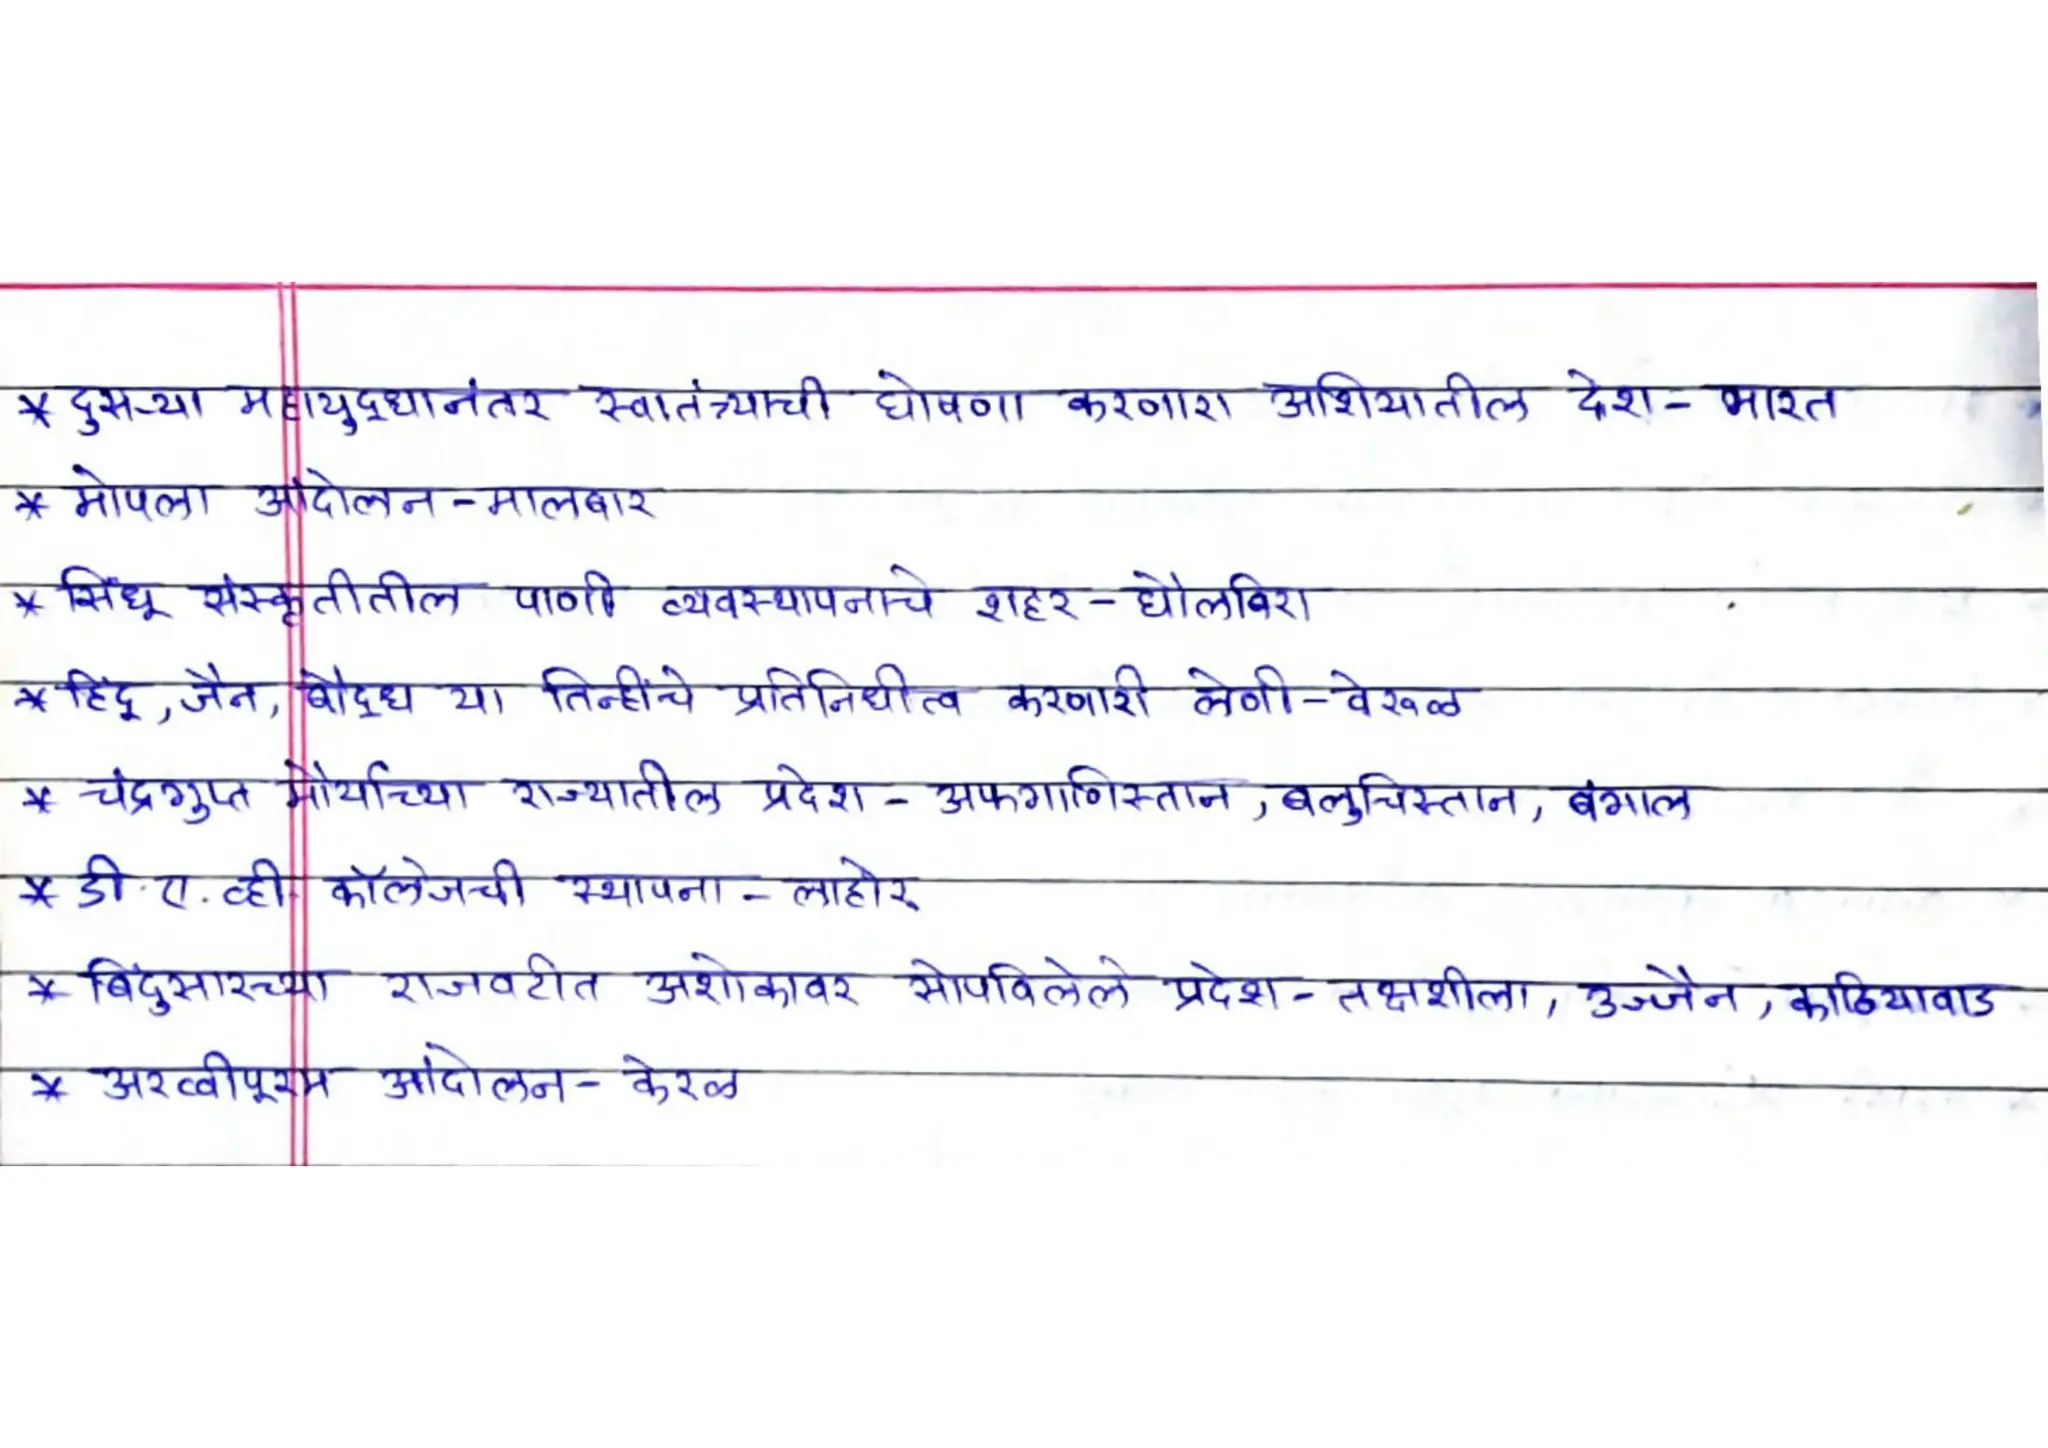 * दुसऱ्या महायुद्धानंतर स्वातंत्र्याची घोषणा करणारा अशियातील देश - भारत
* मोपला आंदोलन - मालबार
* सिंधू संस्कृतीतील पाणी व्यवस्थापनाचे शहर - धोलविरा
* हिंदू, जैन, बौद्ध या तिन्हींचे प्रतिनिधीत्व करणारी लेणी - वेरूळ
* चंद्रगुप्त मौर्याच्या राज्यातील प्रदेश - अफगाणिस्तान, बलुचिस्तान, बंगाल
* डी. ए. व्ही कॉलेजची स्थापना - लाहोर
* बिंदुसारच्या राजवटीत अशोकावर सोपविलेले प्रदेश - तक्षशीला, उज्जैन, काठियावाड
* अरव्वीपूरम आंदोलन - केरळ